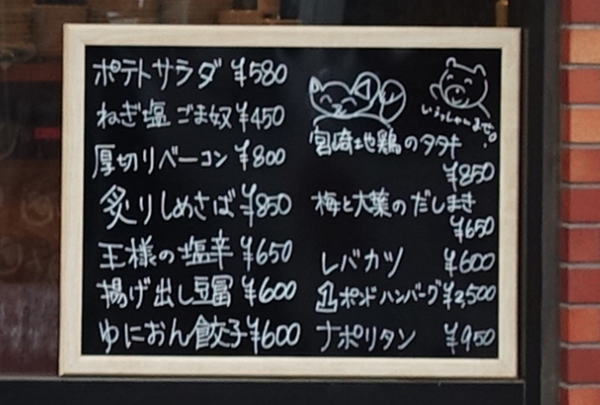 ポテトサラダ ¥580
ねぎ塩ごま奴 ¥450
厚切りベーコン ¥800
炙りしめさば ¥850
王様の塩辛 ¥650
揚げ出し豆冨 ¥600
ゆにおん餃子 ¥600
いらっしゃいませ!
宮崎地鶏のタタキ
¥850
梅と大葉のだしまき
¥650
レバカツ ¥600
1ポンドハンバーグ ¥2,500
ナポリタン ¥950